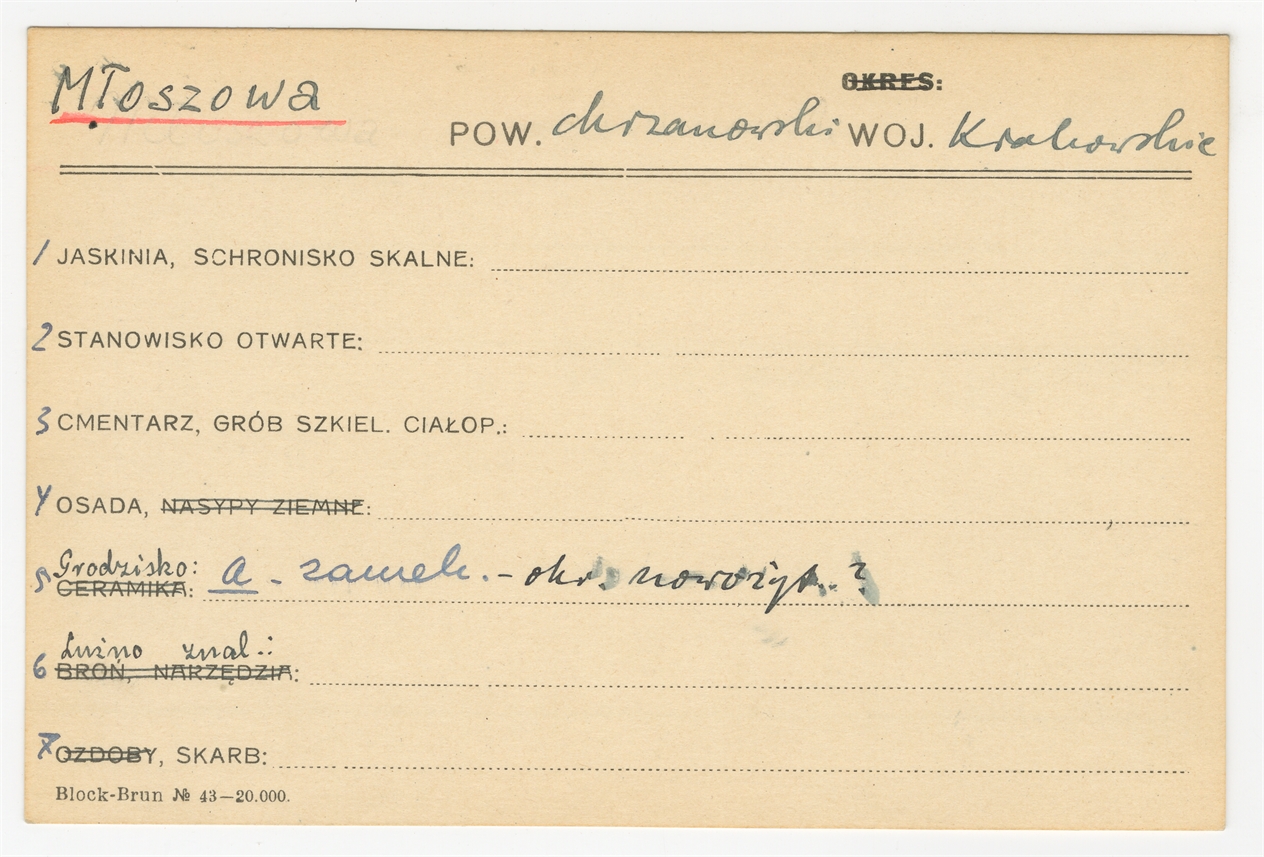 Młoszowa
OKRES:
POW. chrzanowski WOJ. Krakowskie
1 JASKINIA, SCHRONISKO SKALNE:
2 STANOWISKO OTWARTE:
3 CMENTARZ, GRÓB SZKIEL. CIAŁOP.:
4 OSADA, NASYPY ZIEMNE:
Grodzisko: a - zamek. - okr. nowożyt. ?
5 CERAMIKA:
Luźno znal.:
6 BROŃ, NARZĘDZIA:
7 OZDOBY, SKARB:
Block-Brun № 43—20.000.